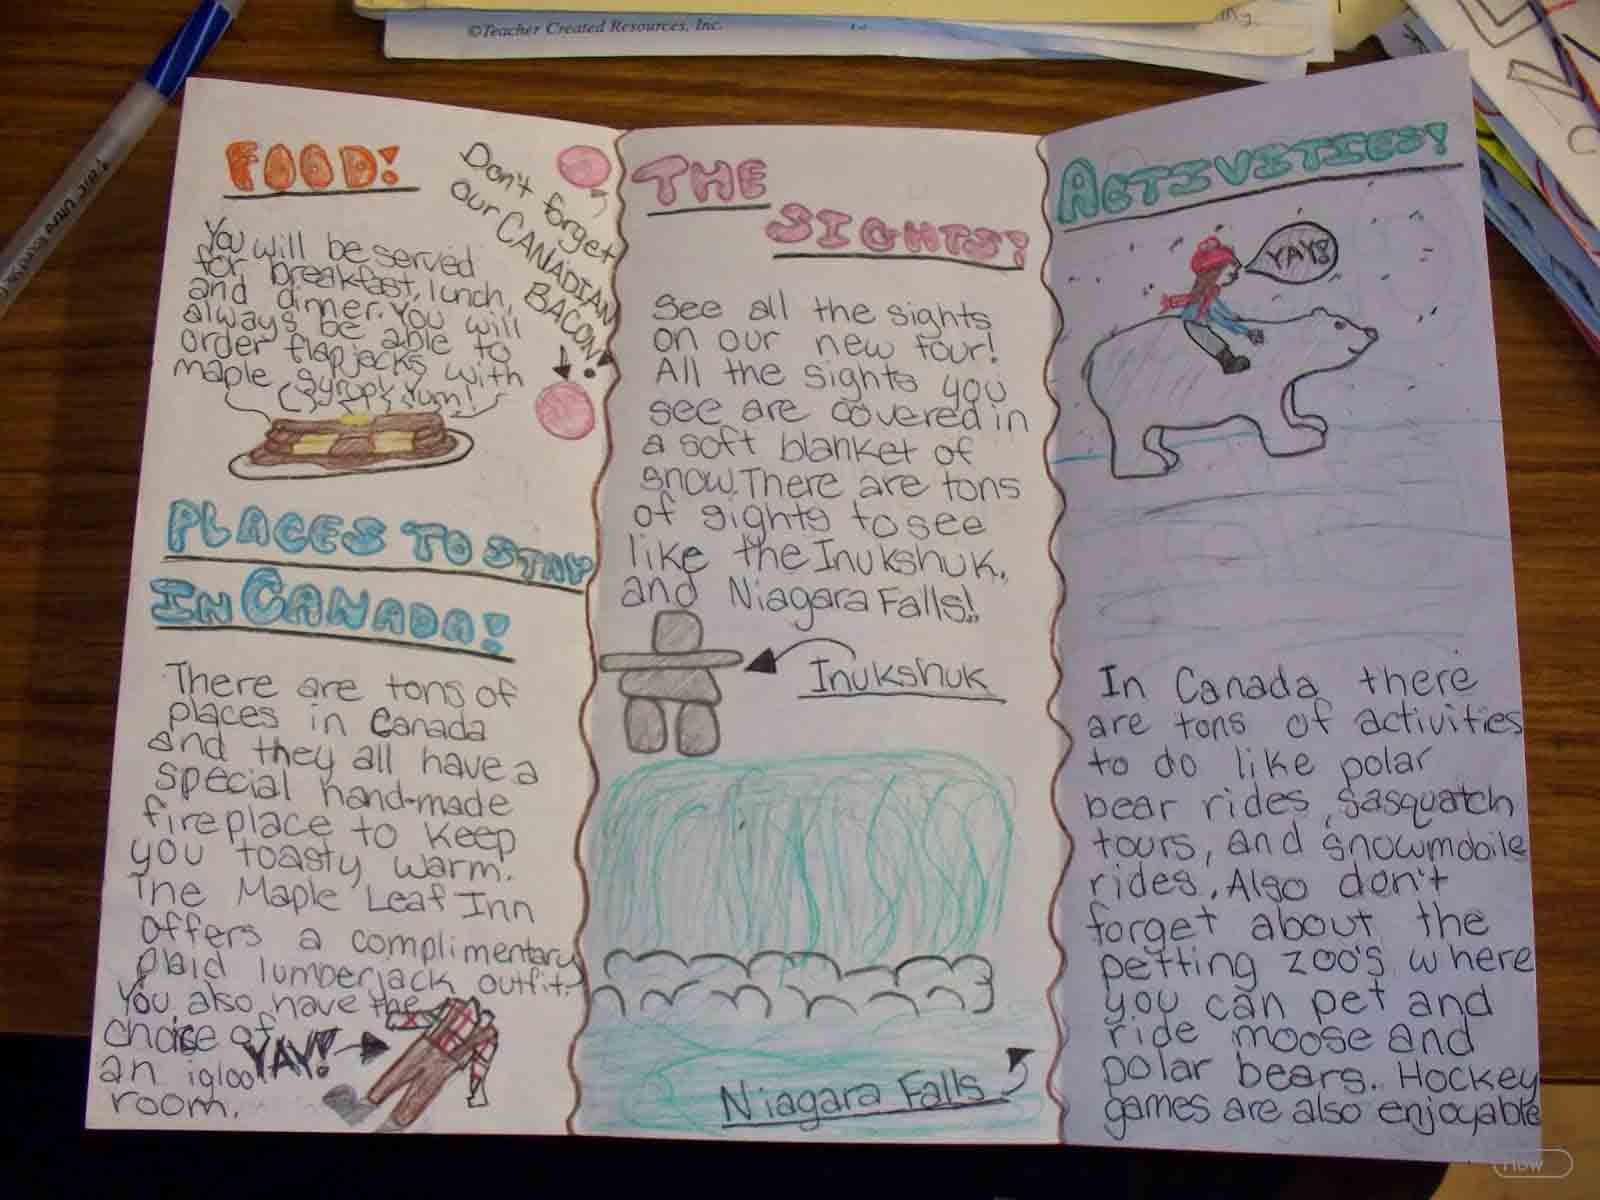 ©Teacher Created Resources, Inc.
FOOD!
Don't forget
our CANADIAN
BACON!
You will be served
for breakfast, lunch,
and dinner. You will
always be able to
order flapjacks with
maple syrup! Yum!
PLACES TO STAY
IN CANADA!
There are tons of
places in Canada
and they all have a
special hand-made
fireplace to keep
you toasty warm.
The Maple Leaf Inn
offers a complimentary
plaid lumberjack outfit.
You also have the
choice of
an igloo
room.
YAY!
THE
SIGHTS!
See all the sights
on our new tour!
All the sights you
see are covered in
a soft blanket of
snow. There are tons
of sights to see
like the Inukshuk,
and Niagara Falls!
Inukshuk
Niagara Falls
ACTIVITIES!
YAY!
In Canada there
are tons of activities
to do like polar
bear rides, sasquatch
tours, and snowmobile
rides. Also don't
forget about the
petting zoo's where
you can pet and
ride moose and
polar bears. Hockey
games are also enjoyable